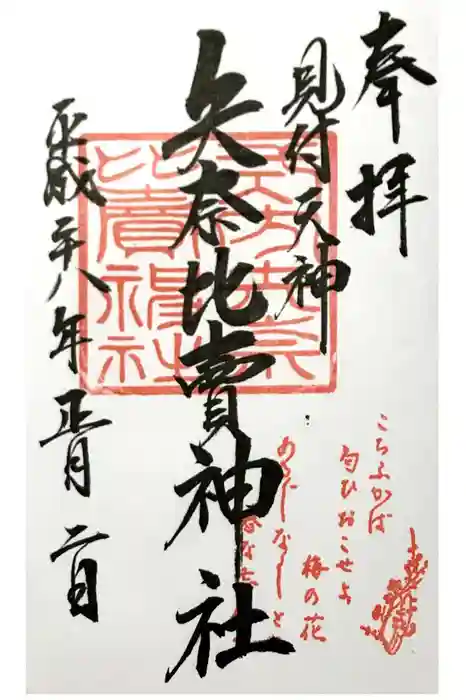 奉拝
見付天神
矢奈比賣神社
平成二十八年正月二日
こちふかば
匂ひおこせよ
梅の花
あるじなしと
春な忘